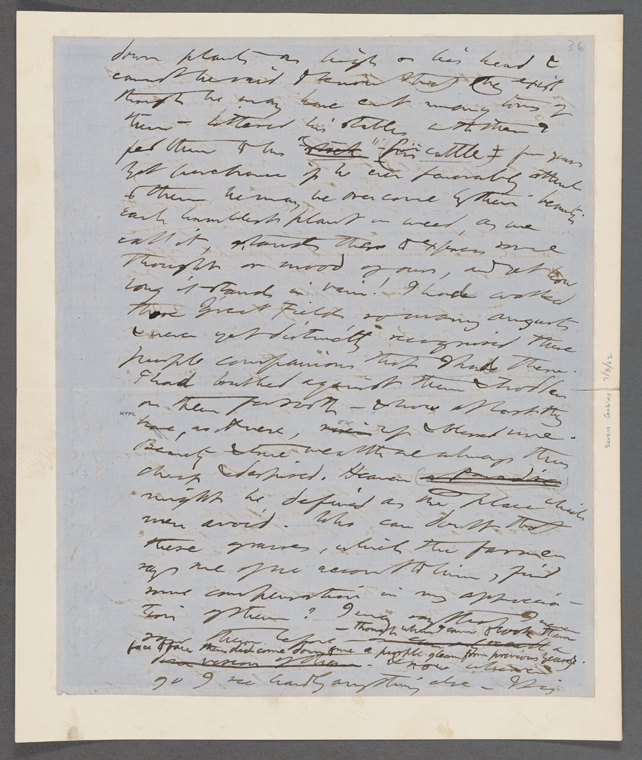 36
down plants as high as his head &
cannot be said to know that they exist
though he may have cut many tons of
them - littered his stables with them &
fed them to his "stock" (his cattle) for years
Yet perchance if he ever favorably attend
to them he may be overcome by their beauty.
each humblest plant or weed, as we
call it, stands there to express some
thought or mood of ours, and yet how
long it stands in vain! I had walked
those Great Fields so many Augusts
& never yet distinctly recognised these
purple companions that I had there.
I had brushed against them & trodden
on them forsooth - & now at last they
have, as it were, rise up & blessed me.
Beauty & true wealth are always thus
cheap & despised. Heaven or paradise
might be defined as the place which
men avoid. Who can doubt that
these grasses, which the farmer
says are of no account to him, find
some compensation in my apprecia-
tion of them? I may say that I never
saw them before
- though when I came to look them
face to face there did come down to me a purple gleam from previous years.
& now wherever
go I see hardly anything else -